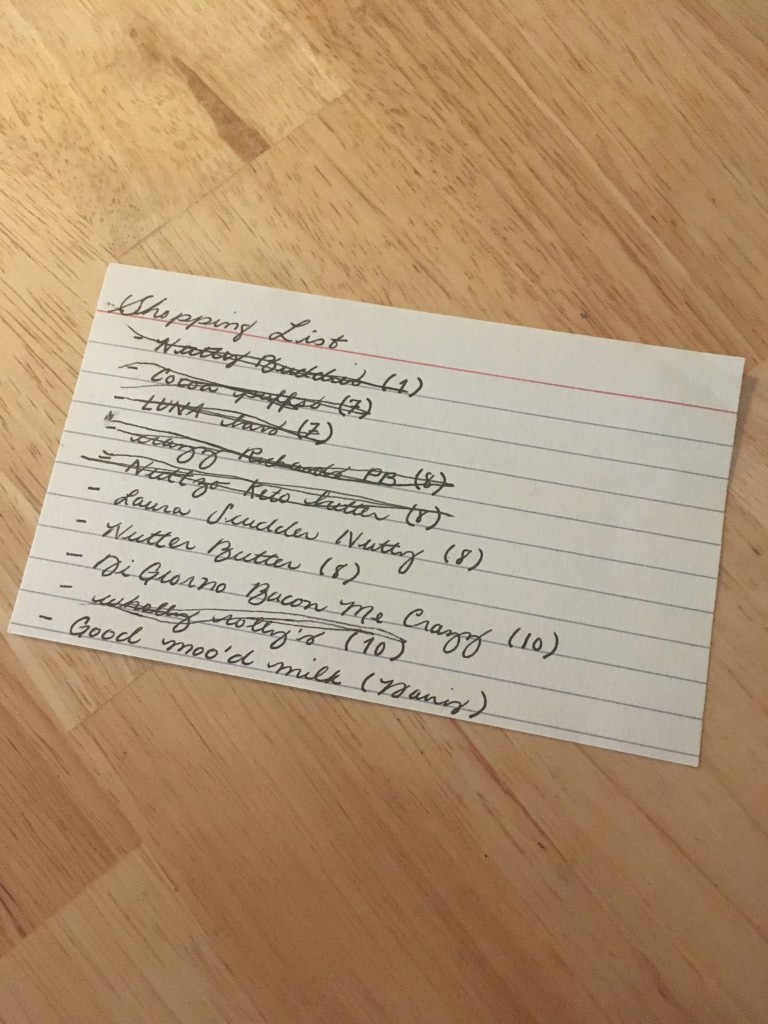 Shopping List
- Nutty Buddies (1)
- Cocoa puffs (7)
- LUNA bars (7)
- Crazy Richards PB (8)
- Nuttzo Keto butter (8)
- Laura Scudder Nutty (8)
- Nutter Butter (8)
- DiGiorno Bacon Me Crazy (10)
- wholly rolly's (10)
- Good moo'd milk (Dairy)